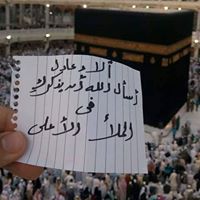 ألاء عادل
أسأل الله أن يذكرك
فى
الملأ الأعلى